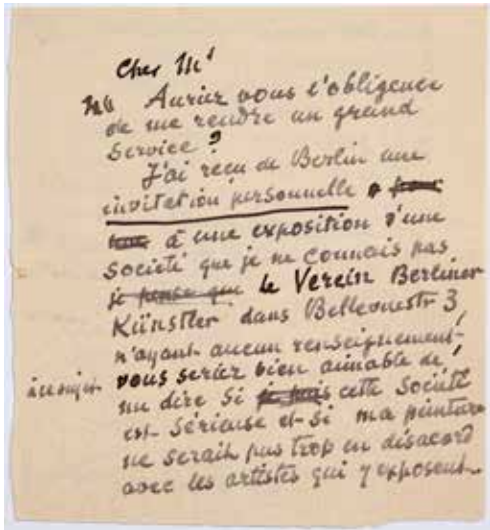 Cher Mr
Auriez vous l'obligence
de me rendre un grand
service ?
J'ai reçu de Berlin une
invitation personnelle
à une exposition d'une
Société que je ne connais pas
je pense que le Verein Berliner
Künstler dans Bellevuestr 3,
n'ayant aucun renseignement
à ce sujet vous seriez bien aimable de
me dire si je puis cette Société
est sérieuse et si ma peinture
ne serait pas trop en désacord
avec les artistes qui y exposent.